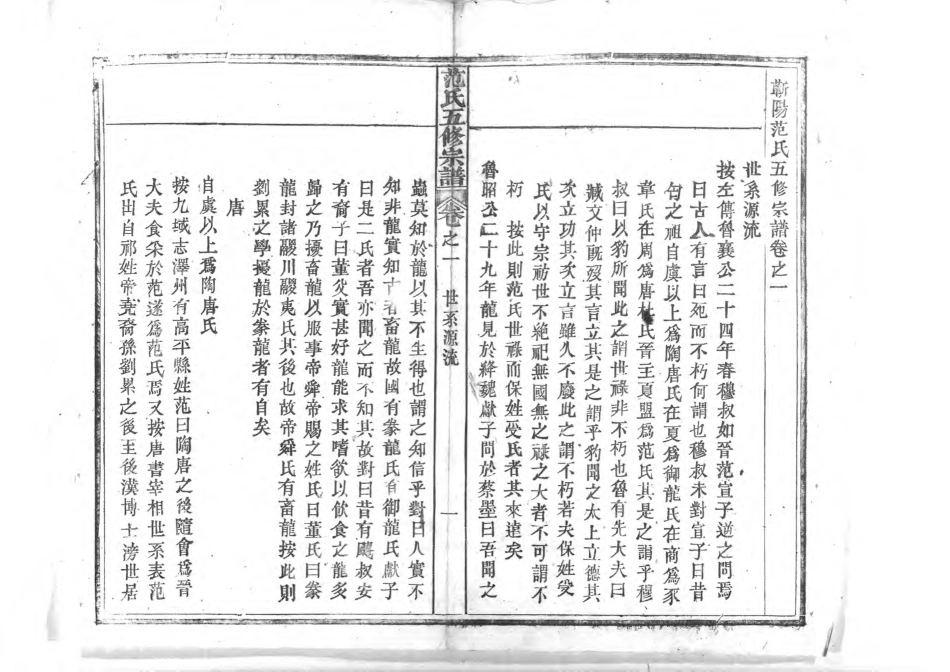 蘄陽范氏五修宗譜卷之一
世系源流
按左傳魯襄公二十四年春穆叔如晉范宣子逆之問焉
曰古人有言曰死而不朽何謂也穆叔未對宣子曰昔
匄之祖自虞以上爲陶唐氏在夏爲御龍氏在商爲豕
韋氏在周爲唐杜氏晉主夏盟爲范氏其是之謂乎穆
叔曰以豹所聞此之謂世祿非不朽也魯有先大夫曰
臧文仲旣歿其言立其是之謂乎豹聞之太上立德其
次立功其次立言雖久不廢此之謂不朽若夫保姓受
氏以守宗祊世不絕祀無國無之祿之大者不可謂不
朽　按此則范氏世祿而保姓受氏者其來遠矣
魯昭公二十九年龍見於絳魏獻子問於蔡墨曰吾聞之
范氏五修宗譜　卷之一　世系源流　一
蟲莫知於龍以其不生得也謂之知信乎對曰人實不
知非龍實知古者畜龍故國有豢龍氏有御龍氏獻子
曰是二氏者吾亦聞之而不知其故對曰昔有飂叔安
有裔子曰董父實甚好龍能求其嗜欲以飲食之龍多
歸之乃擾畜龍以服事帝舜帝賜之姓氏曰董氏曰豢
龍封諸鬷川鬷夷氏其後也故帝舜氏有畜龍按此則
劉累之學擾龍於豢龍者有自矣
唐
自虞以上爲陶唐氏
按九域志澤州有高平縣姓范曰陶唐之後隨會爲晉
大夫食采於范遂爲范氏焉又按唐書宰相世系表范
氏出自祁姓帝堯裔孫劉累之後至後漢博士滂世居